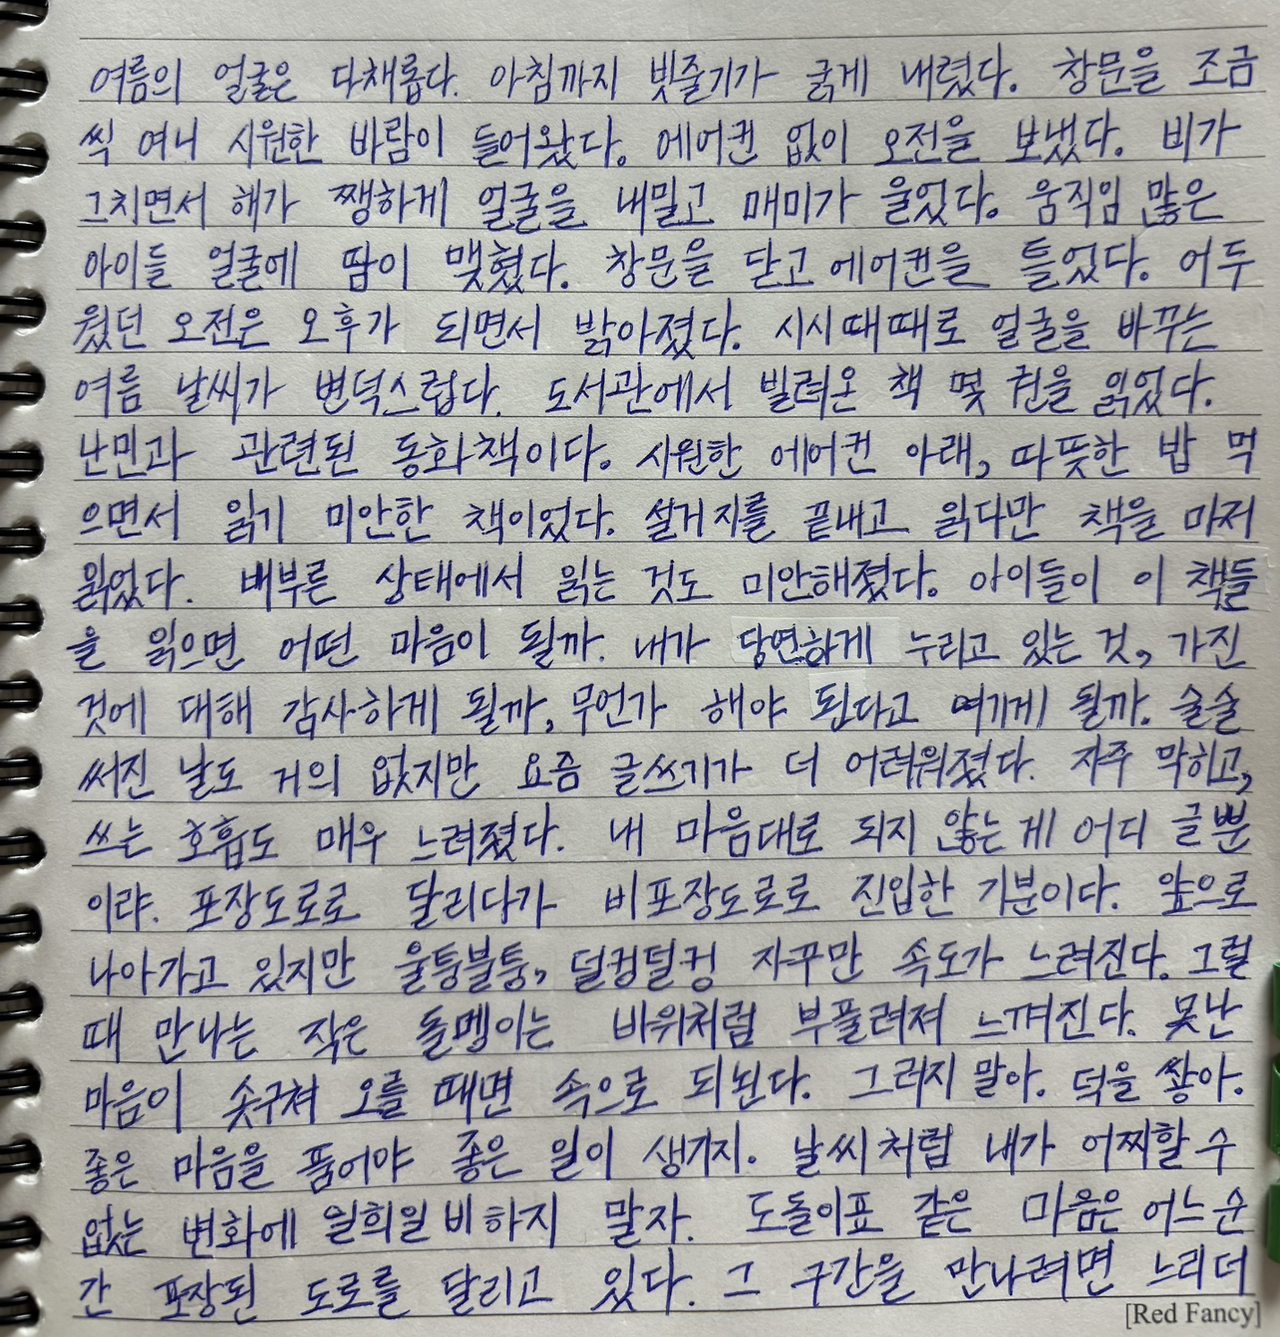 여름의 얼굴은 다채롭다. 아침까지 빗줄기가 굵게 내렸다. 창문을 조금
씩 여니 시원한 바람이 들어왔다. 에어컨 없이 오전을 보냈다. 비가
그치면서 해가 쨍하게 얼굴을 내밀고 매미가 울었다. 움직임 많은
아이들 얼굴에 땀이 맺혔다. 창문을 닫고 에어컨을 틀었다. 어두
웠던 오전은 오후가 되면서 밝아졌다. 시시때때로 얼굴을 바꾸는
여름 날씨가 변덕스럽다. 도서관에서 빌려온 책 몇 권을 읽었다.
난민과 관련된 동화책이다. 시원한 에어컨 아래, 따뜻한 밥 먹
으면서 읽기 미안한 책이었다. 설거지를 끝내고 읽다만 책을 마저
읽었다. 배부른 상태에서 읽는 것도 미안해졌다. 아이들이 이 책들
을 읽으면 어떤 마음이 될까. 내가 당연하게 누리고 있는 것, 가진
것에 대해 감사하게 될까, 무언가 해야 된다고 여기게 될까. 술술
써진 날도 거의 없지만 요즘 글쓰기가 더 어려워졌다. 자주 막히고,
쓰는 호흡도 매우 느려졌다. 내 마음대로 되지 않는게 어디 글뿐
이랴. 포장도로로 달리다가 비포장도로로 진입한 기분이다. 앞으로
나아가고 있지만 울퉁불퉁, 덜컹덜컹 자꾸만 속도가 느려진다. 그럴
때 만나는 작은 돌멩이는 바위처럼 부풀려져 느껴진다. 못난
마음이 솟구쳐 오를 때면 속으로 되뇐다. 그러지 말아. 덕을 쌓아.
좋은 마음을 품어야 좋은 일이 생기지. 날씨처럼 내가 어찌할 수
없는 변화에 일희일비하지 말자. 도돌이표 같은 마음은 어느 순
간 포장된 도로를 달리고 있다. 그 구간을 만나려면 느리더
[Red Fancy]